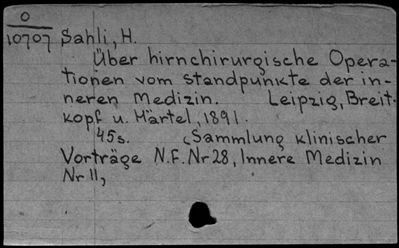 0
10707 Sahli, H.
Über hirnchirurgische Opera-
tionen vom standpunkte der in-
neren Medizin. Leipzig, Breit-
kopf u. Härtel, 1891.
45s. (Sammlung klinischer
Vorträge N.F. Nr 28, Innere Medizin
Nr 11,